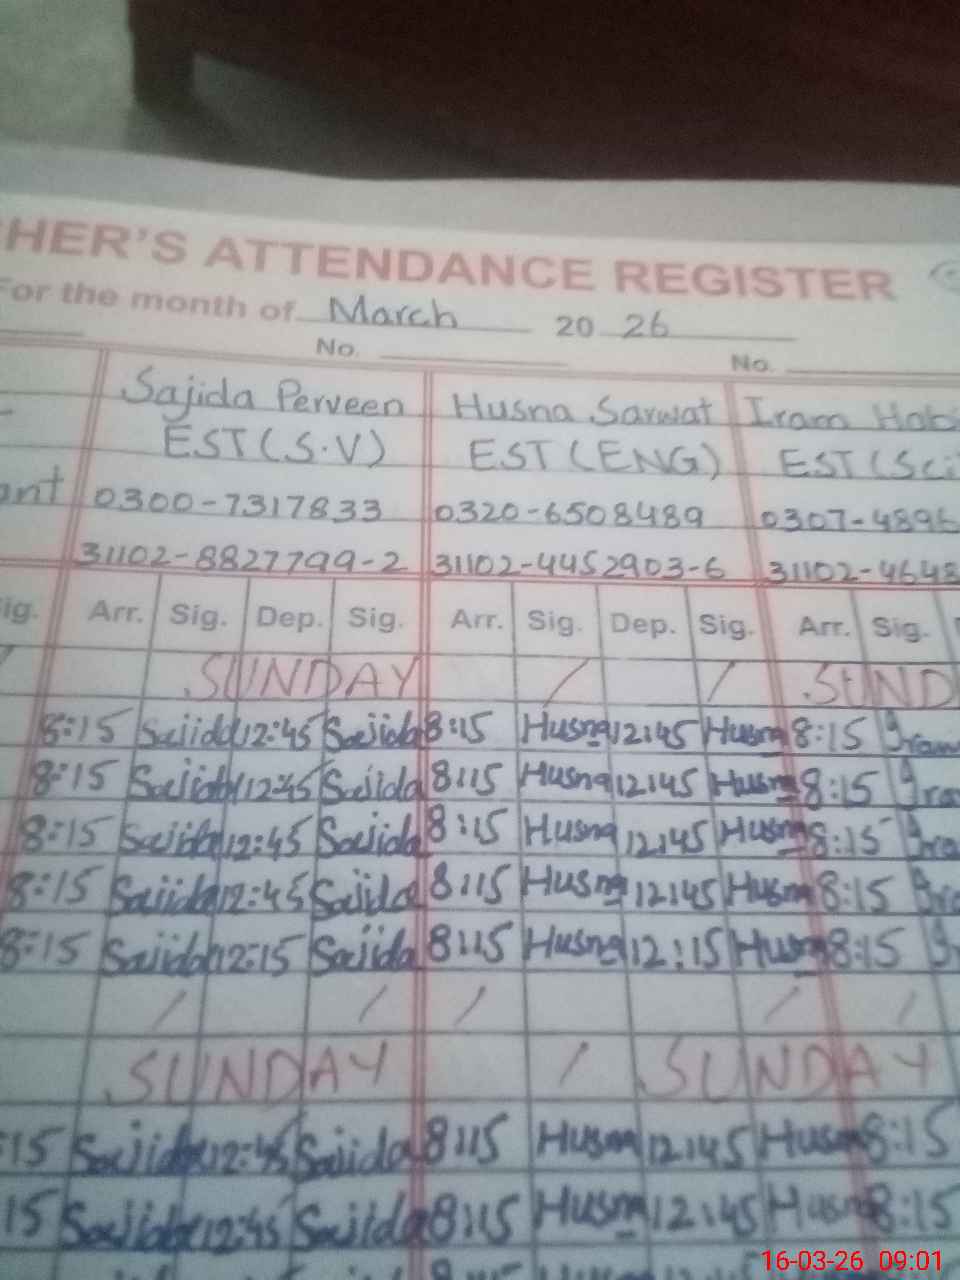 HER'S ATTENDANCE REGISTER
For the month of March 20 26
No. No.
Sajida Perveen Husna Sarwat Iram Hab
EST(S.V) EST (ENG) EST (Sci
ant 0300-7317833 0320-6508489 0307-4896
31102-8827799-2 31102-4452903-6 31102-4648
ig. Arr. Sig. Dep. Sig. Arr. Sig. Dep. Sig. Arr. Sig.
SUNDAY / / SUND
8:15 Sajida 12:45 Sajida 8:15 Husna 12:45 Husna 8:15 Iram
8:15 Sajida 12:45 Sajida 8:15 Husna 12:45 Husna 8:15 Ira
8:15 Sajida 12:45 Sajida 8:15 Husna 12:45 Husna 8:15 Ira
8:15 Sajida 12:45 Sajida 8:15 Husna 12:45 Husna 8:15
8:15 Sajida 12:15 Sajida 8:15 Husna 12:15 Husna 8:15
/ / / / /
SUNDAY / SUNDAY
:15 Sajida 12:45 Sajida 8:15 Husna 12:45 Husna 8:15
15 Sajida 12:45 Sajida 8:15 Husna 12:45 Husna 8:15
16-03-26 09:01